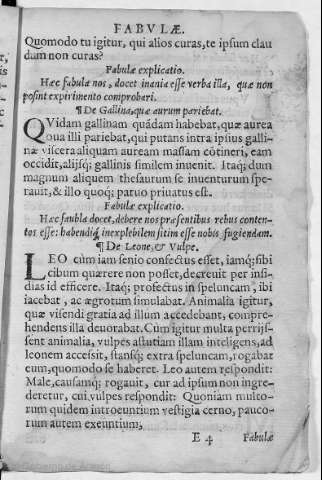 FABVLÆ.
Quomodo tu igitur, qui alios curas, te ipsum clau
dam non curas?
Fabulæ explicatio.
Hæc fabula nos, docet inania esse verba illa, quæ non
possint expirimento comprobari.
¶ De Gallina, quæ aurum pariebat.
QVidam gallinam quãdam habebat, quæ aurea
oua illi pariebat, qui putans intra ipsius galli-
næ viscera aliquam auream massam cõtineri, eam
occidit, alijsq; gallinis similem inuenit. Itaq; dum
magnum aliquem thesaurum se inuenturum spe-
rauit, & illo quoq; paruo priuatus est.
Fabulæ explicatio.
Hæc faubla docet, debere nos præsentibus rebus conten-
tos esse: habendiq; inexplebilem sitim esse nobis fugiendam.
¶ De Leone, & Vulpe.
LEO cùm iam senio confectus esset, iamq; sibi
cibum quærere non posset, decreuit per insi-
dias id efficere. Itaq; profectus in speluncam, ibi
iacebat, ac ægrotum simulabat. Animalia igitur,
quæ visendi gratia ad illum accedebant, compre-
hendens illa deuorabat. Cùm igitur multa perrijs-
sent animalia, vulpes astutiam illam inteligens, ad
leonem accessit, stansq; extra speluncam, rogabat
eum, quomodo se haberet. Leo autem respondit:
Male, causamq; rogauit, cur ad ipsum non ingre-
deretur, cui vulpes respondit: Quoniam multo-
rum quidem introeuntium vestigia cerno, pauco-
rum autem exeuntium,
E 4 Fabulæ